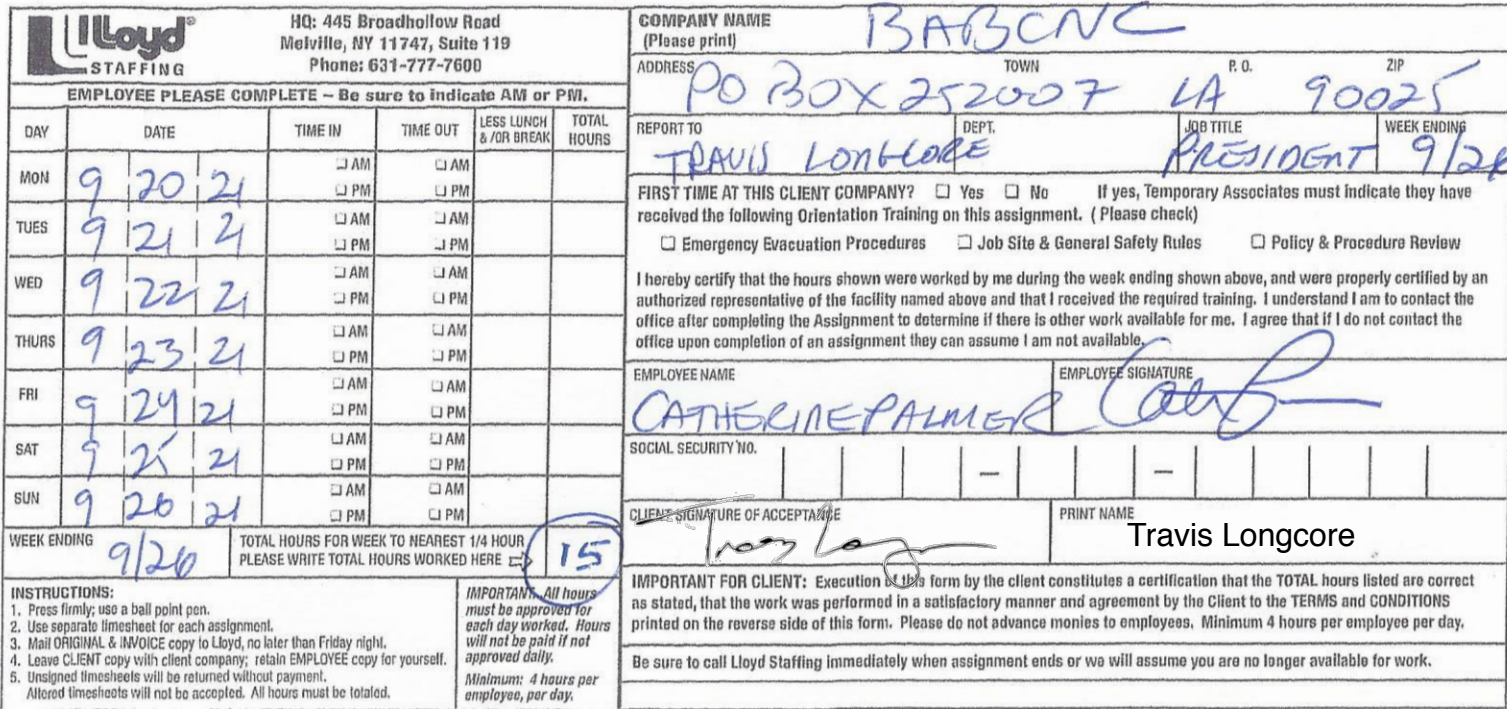 Lloyd®
STAFFING
HQ: 445 Broadhollow Road
Melville, NY 11747, Suite 119
Phone: 631-777-7600
EMPLOYEE PLEASE COMPLETE – Be sure to indicate AM or PM.
DAY DATE TIME IN TIME OUT LESS LUNCH & /OR BREAK TOTAL HOURS
MON 9 20 21 ❑ AM ❑ PM ❑ AM ❑ PM
TUES 9 21 21 ❑ AM ❑ PM ❑ AM ❑ PM
WED 9 22 21 ❑ AM ❑ PM ❑ AM ❑ PM
THURS 9 23 21 ❑ AM ❑ PM ❑ AM ❑ PM
FRI 9 24 21 ❑ AM ❑ PM ❑ AM ❑ PM
SAT 9 25 21 ❑ AM ❑ PM ❑ AM ❑ PM
SUN 9 26 21 ❑ AM ❑ PM ❑ AM ❑ PM
WEEK ENDING 9/26
TOTAL HOURS FOR WEEK TO NEAREST 1/4 HOUR
PLEASE WRITE TOTAL HOURS WORKED HERE ⇨ 15
INSTRUCTIONS:
1. Press firmly; use a ball point pen.
2. Use separate timesheet for each assignment.
3. Mail ORIGINAL & INVOICE copy to Lloyd, no later than Friday night.
4. Leave CLIENT copy with client company; retain EMPLOYEE copy for yourself.
5. Unsigned timesheets will be returned without payment.
Altered timesheets will not be accepted. All hours must be totaled.
IMPORTANT: All hours
must be approved for
each day worked. Hours
will not be paid if not
approved daily.
Minimum: 4 hours per
employee, per day.
COMPANY NAME
(Please print)
BABCNC
ADDRESS TOWN P. O. ZIP
PO BOX 252007 LA 90025
REPORT TO DEPT. JOB TITLE WEEK ENDING
TRAVIS LONGCORE PRESIDENT 9/26
FIRST TIME AT THIS CLIENT COMPANY? ❑ Yes ❑ No If yes, Temporary Associates must indicate they have
received the following Orientation Training on this assignment. ( Please check)
❑ Emergency Evacuation Procedures ❑ Job Site & General Safety Rules ❑ Policy & Procedure Review
I hereby certify that the hours shown were worked by me during the week ending shown above, and were properly certified by an
authorized representative of the facility named above and that I received the required training. I understand I am to contact the
office after completing the Assignment to determine if there is other work available for me. I agree that if I do not contact the
office upon completion of an assignment they can assume I am not available.
EMPLOYEE NAME EMPLOYEE SIGNATURE
CATHERINE PALMER
SOCIAL SECURITY NO. – –
CLIENT SIGNATURE OF ACCEPTANCE PRINT NAME
Travis Longcore
IMPORTANT FOR CLIENT: Execution of this form by the client constitutes a certification that the TOTAL hours listed are correct
as stated, that the work was performed in a satisfactory manner and agreement by the Client to the TERMS and CONDITIONS
printed on the reverse side of this form. Please do not advance monies to employees. Minimum 4 hours per employee per day.
Be sure to call Lloyd Staffing immediately when assignment ends or we will assume you are no longer available for work.